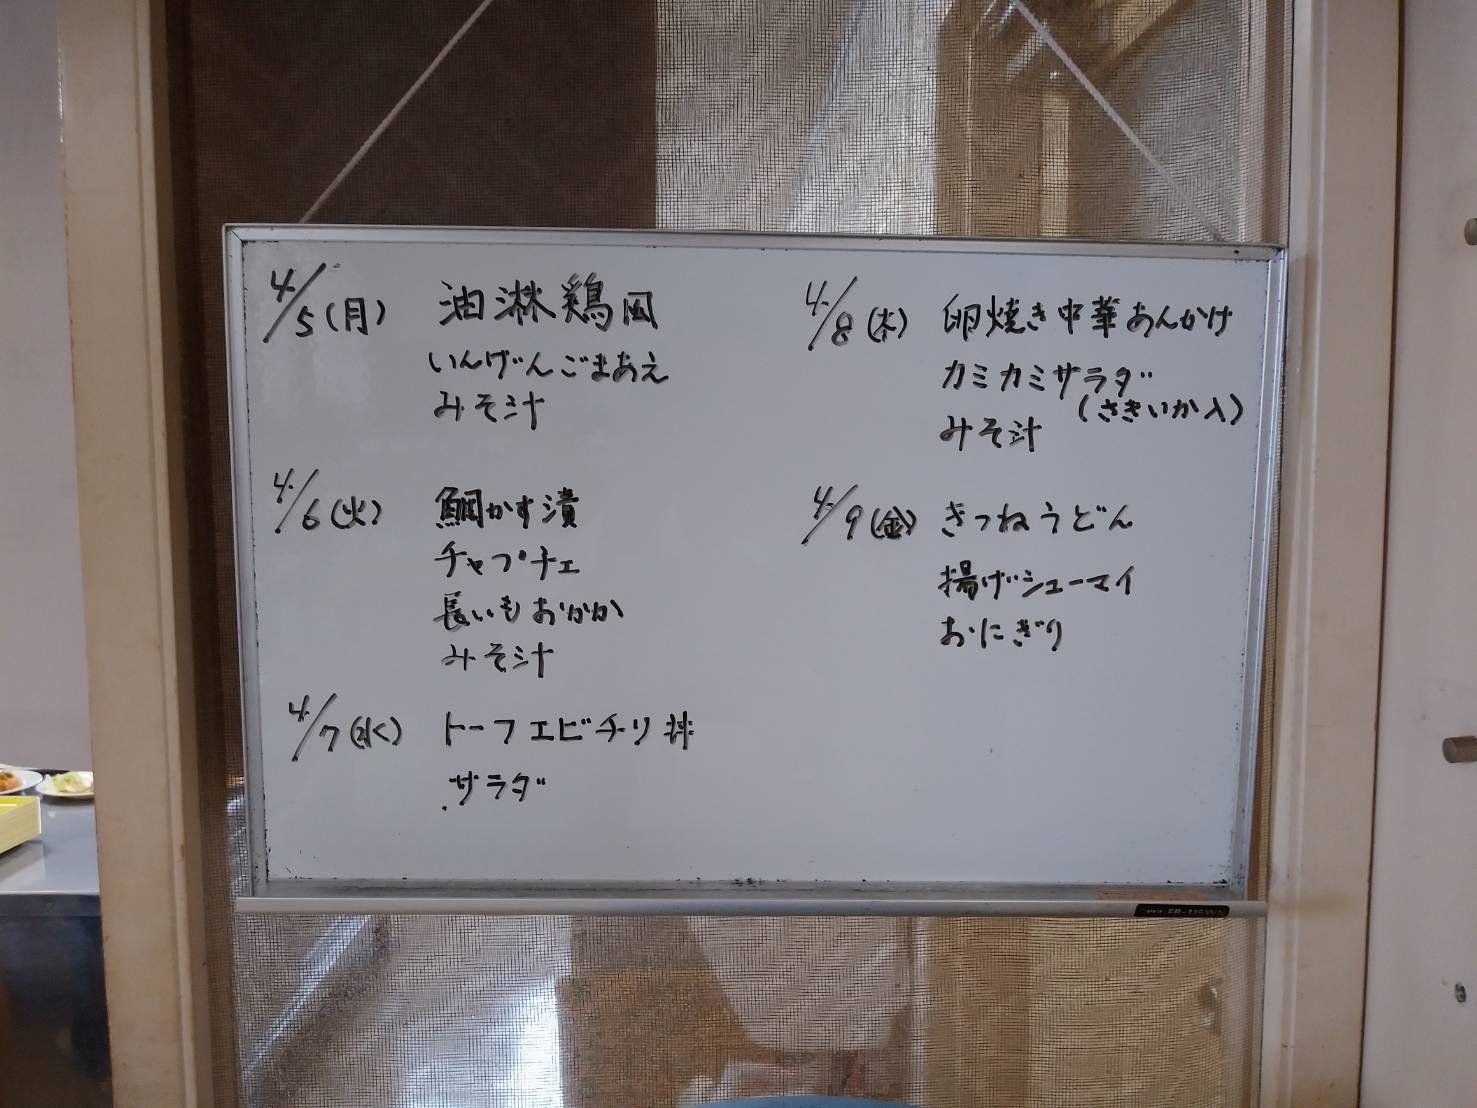 4/5(月) 油淋鶏風
いんげんごまあえ
みそ汁
4/6(火) 鯛かす漬
チャプチェ
長いもおかか
みそ汁
4/7(水) トーフエビチリ丼
サラダ
4/8(木) 卵焼き中華あんかけ
カミカミサラダ
(さきいか入)
みそ汁
4/9(金) きつねうどん
揚げシューマイ
おにぎり